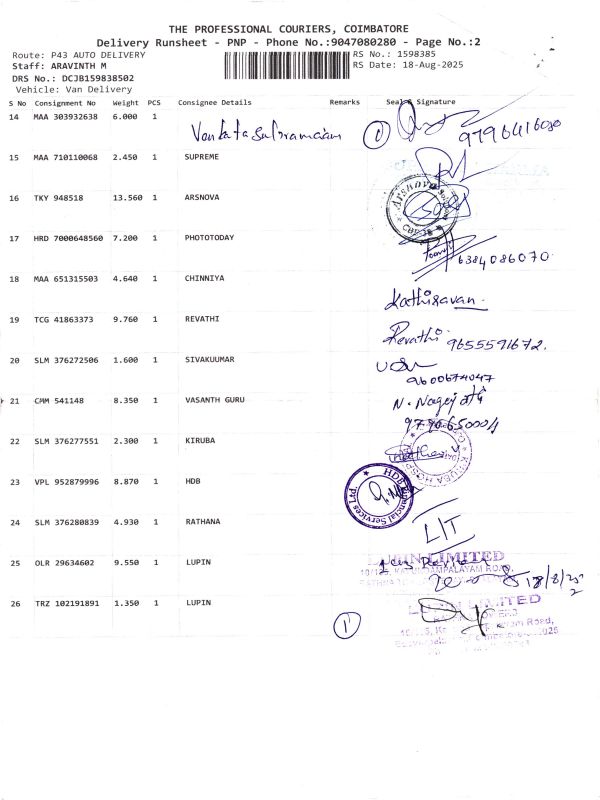 THE PROFESSIONAL COURIERS, COIMBATORE
Delivery Runsheet - PNP - Phone No.:9047080280 - Page No.:2
Route: P43 AUTO DELIVERY RS No.: 1598385
Staff: ARAVINTH M RS Date: 18-Aug-2025
DRS No.: DCJB159838502
Vehicle: Van Delivery
S No Consignment No Weight PCS Consignee Details Remarks Seal & Signature
14 MAA 303932638 6.000 1 Venkatasubramaniam 1
9796416080
15 MAA 710110068 2.450 1 SUPREME
16 TKY 948518 13.560 1 ARSNOVA
Arsnova
17 HRD 7000648560 7.200 1 PHOTOTODAY
6384086070
18 MAA 651315503 4.640 1 CHINNIYA
Kathiravan
19 TCG 41863373 9.760 1 REVATHI
Revathi 9655591672.
20 SLM 376272506 1.600 1 SIVAKUUMAR
9600674047
21 CMM 541148 8.350 1 VASANTH GURU
N. Nagaj
22 SLM 376277551 2.300 1 KIRUBA
KIRUBA HOSP
23 VPL 952879996 8.870 1 HDB
HDB Financial Services Ltd.
24 SLM 376280839 4.930 1 RATHANA
LIT
25 OLR 29634602 9.550 1 LUPIN
LUPIN LIMITED
18/8/25
26 TRZ 102191891 1.350 1 LUPIN
LUPIN LIMITED
1